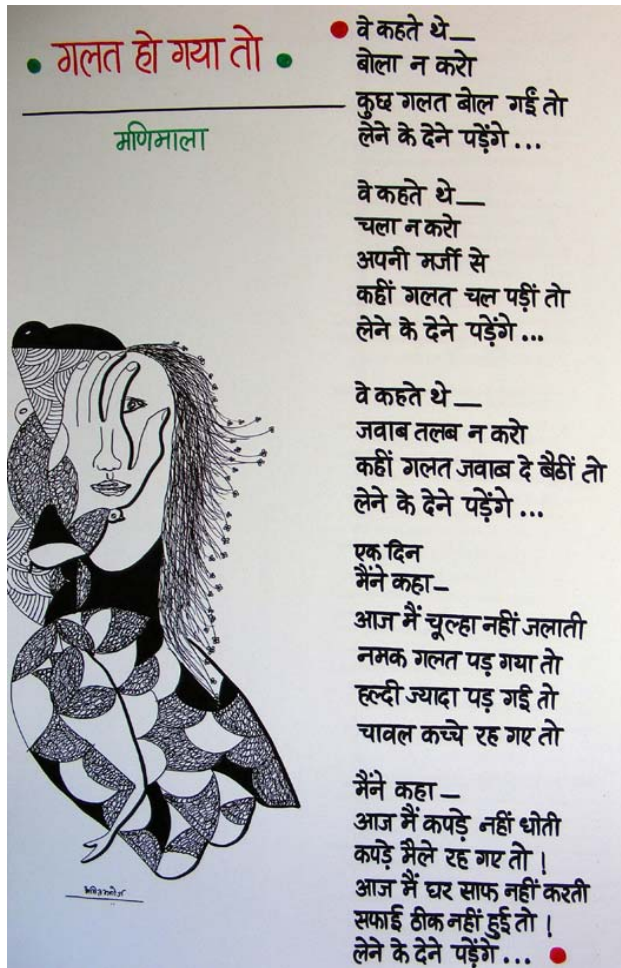 गलत हो गया तो
मणिमाला
वे कहते थे—
बोला न करो
कुछ गलत बोल गईं तो
लेने के देने पड़ेंगे...
वे कहते थे—
चला न करो
अपनी मर्जी से
कहीं गलत चल पड़ीं तो
लेने के देने पड़ेंगे...
वे कहते थे—
जवाब तलब न करो
कहीं गलत जवाब दे बैठीं तो
लेने के देने पड़ेंगे...
एक दिन
मैंने कहा—
आज मैं चूल्हा नहीं जलाती
नमक गलत पड़ गया तो
हल्दी ज्यादा पड़ गई तो
चावल कच्चे रह गए तो
मैंने कहा—
आज मैं कपड़े नहीं धोती
कपड़े मैले रह गए तो !
आज मैं घर साफ नहीं करती
सफाई ठीक नहीं हुई तो !
लेने के देने पड़ेंगे...